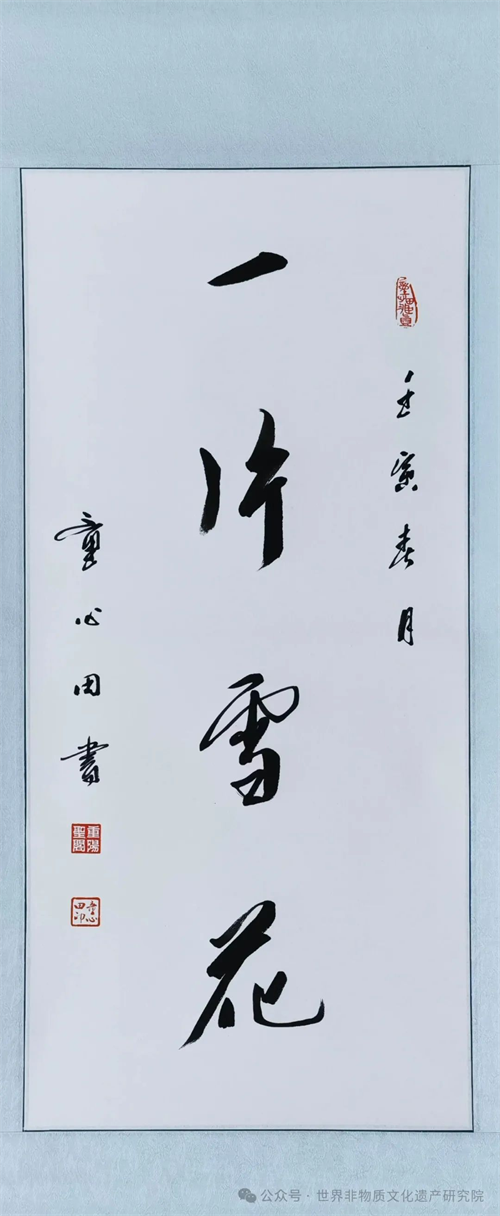 壬寅春月
一片雪花
童心田書
童心田印
公众号 · 世界非物质文化遗产研究院